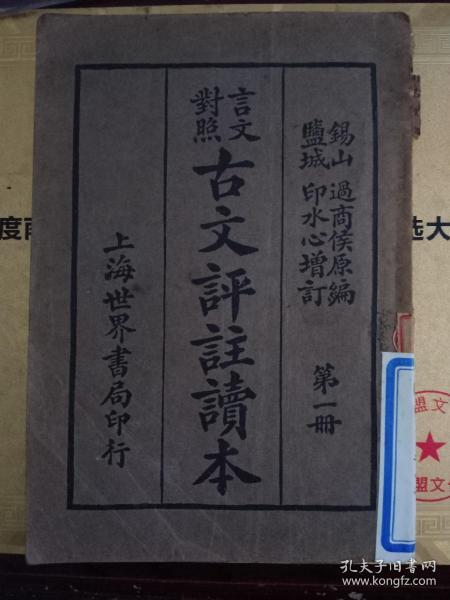 錫山 過商侯原編
鹽城 印水心增訂
第一冊
言文
對照
古文評註讀本
上海世界書局印行
度
选大
盟文
盟文
孔夫子旧书网
www.kongfz.com